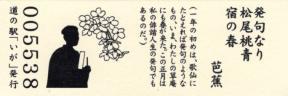 発句なり
松尾桃青
宿の春
芭蕉
（一年の初めは、歌仙に
たとえれば発句のような
もの。いま、わたしの草庵
にも春が来た。この正月は
私の俳諧人生の発句でも
あるのだ。）
005538
道の駅「いが」発行